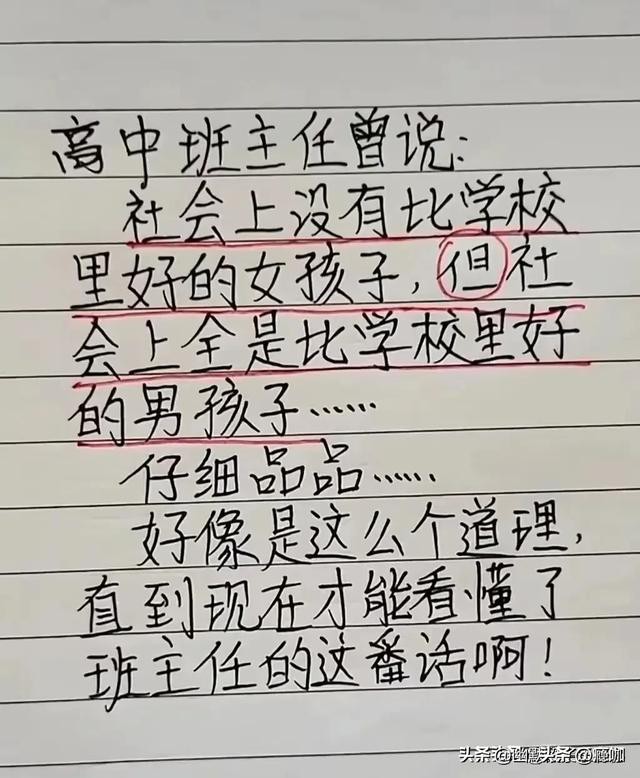 高中班主任曾说:
社会上没有比学校
里好的女孩子,但社
会上全是比学校里好
的男孩子……
仔细品品……
好像是这么个道理,
直到现在才能看懂了
班主任的这番话啊!